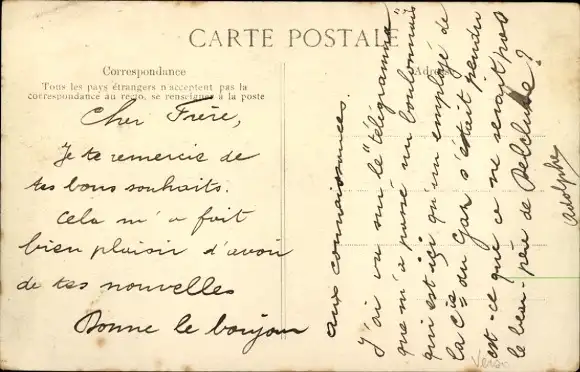 CARTE POSTALE
Correspondance
Tous les pays étrangers n'acceptent pas la
correspondance au recto, se renseigner à la poste
Adresse
Cher Frère,
Je te remercie de
tes bons souhaits.
Cela m'a fait
bien plaisir d'avoir
de tes nouvelles
Donne le bonjour
aux connaissances.
J'ai vu sur le "télégramme"
que m'a passé un boulonnais
qui est ici qu'un employé de
la Cie du Gaz s'était pendu
est-ce que ce ne serait pas
le beau-père de ?
Adolphe